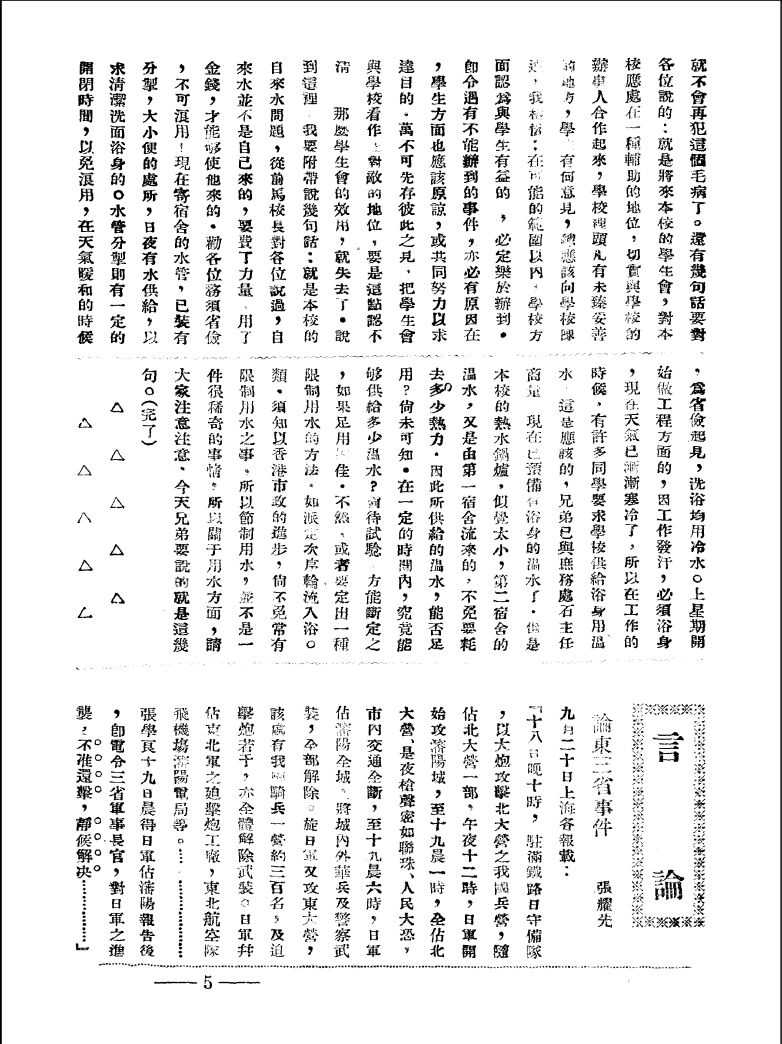 就不會再犯這個毛病了。還有幾句話要對
各位說的:就是將來本校的學生會,對本
校應處在一種輔助的地位,切實與學校的
辦事人合作起來,學校裡頭凡有未臻妥善
的地方,學生有何意見,總應該向學校陳
述,我相信:在可能的範圍以內,學校方
面認爲與學生有益的,必定樂於辦到。
卽令遇有不能辦到的事件,亦必有原因在
,學生方面也應該原諒,或共同努力以求
達目的。萬不可先存彼此之見,把學生會
與學校看作一對敵的地位,要是這點認不
清,那麼學生會的效用,就失去了。說
到這裡,我要附帶說幾句話:就是本校的
自來水問題,從前馬校長對各位說過,自
來水並不是自己來的,要費了力量,用了
金錢,才能够使他來的。勸各位務須省儉
,不可浪用!現在寄宿舍的水管,已裝有
分掣,大小便的處所,日夜有水供給,以
求清潔洗面浴身的。水管分掣則有一定的
開閉時間,以免浪用,在天氣暖和的時候
,爲省儉起見,洗浴均用冷水。上星期開
始做工程方面的,因工作發汗,必須浴身
,現在天氣已漸漸寒冷了,所以在工作的
時候,有許多同學要求學校供給浴身用溫
水,這是應該的,兄弟已與庶務處石主任
商量,現在已預備有浴身的溫水了。但是
本校的熱水鍋爐,似覺太小,第二宿舍的
溫水,又是由第一宿舍流來的,不免要耗
去多少熱力。因此所供給的溫水,能否足
用?尙未可知。在一定的時間內,究竟能
够供給多少溫水?尙待試驗,方能斷定之
,如果足用固佳。不然,或者要定出一種
限制用水的方法。如派定次序輪流入浴。
類。須知以香港市政的進步,尙不免常有
限制用水之事。所以節制用水,並不是一
件很稀奇的事情。所以關于用水方面,請
大家注意注意。今天兄弟要說的就是這幾
句。(完了)
△ △ △ △
△ △ △ △ △
言論
論東三省事件
張耀先
九月二十日上海各報載:
『十八日晚十時,駐滿鐵路日守備隊
,以大炮攻擊北大營之我國兵營,隨
佔北大營一部,午夜十二時,日軍開
始攻瀋陽城,至十九晨一時,全佔北
大營、是夜槍聲密如聯珠、人民大恐,
市內交通全斷,至十九晨六時,日軍
佔瀋陽全城,將城內外華兵及警察武
裝,全部解除。旋日軍又攻東大營,
該處有我國騎兵一營約三百名,及迫
擊炮若干,亦全體解除武裝。日軍幷
佔東北軍之迫擊炮工廠,東北航空隊
飛機塲瀋陽電局等。…………………
張學良十九日晨得日軍佔瀋陽報告後
,卽電令三省軍事長官,對日軍之進
襲,不准還擊,靜候解決。…………』
5